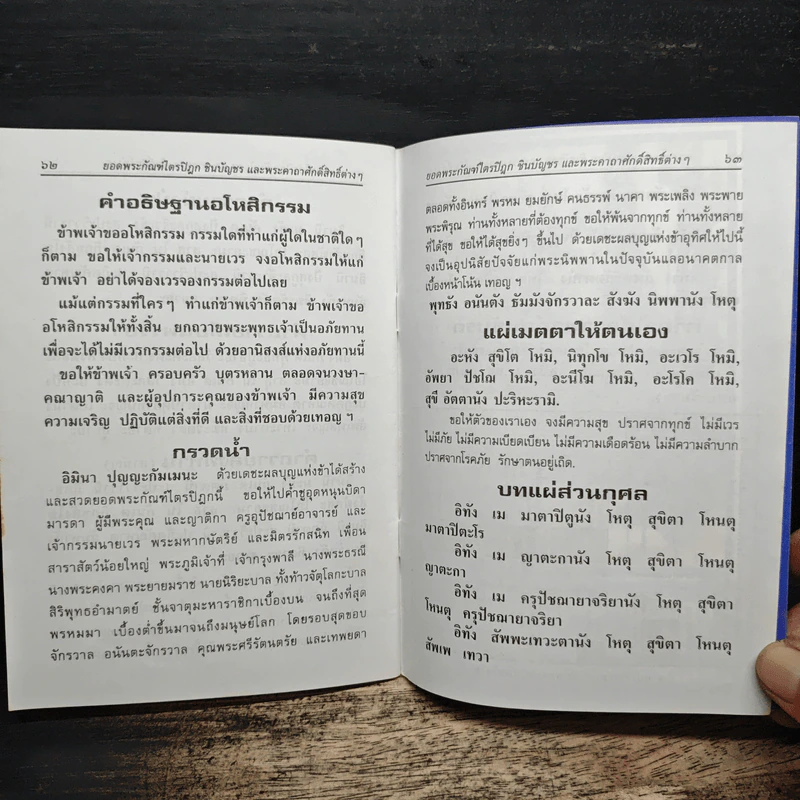 ๖๒ ยอดพระกัณฑ์ไตรปิฎก ชินบัญชร และพระคาถาศักดิ์สิทธิ์ต่างๆ
คำอธิษฐานอโหสิกรรม
ข้าพเจ้าขออโหสิกรรม กรรมใดที่ทำแก่ผู้ใดในชาติใดๆ
ก็ตาม ขอให้เจ้ากรรมและนายเวร จงอโหสิกรรมให้แก่
ข้าพเจ้า อย่าได้จองเวรจองกรรมต่อไปเลย
แม้แต่กรรมที่ใครๆ ทำแก่ข้าพเจ้าก็ตาม ข้าพเจ้าขอ
อโหสิกรรมให้ทั้งสิ้น ยกถวายพระพุทธเจ้าเป็นอภัยทาน
เพื่อจะได้ไม่มีเวรกรรมต่อไป ด้วยอานิสงส์แห่งอภัยทานนี้
ขอให้ข้าพเจ้า ครอบครัว บุตรหลาน ตลอดจนวงษา-
คณาญาติ และผู้อุปการะคุณของข้าพเจ้า มีความสุข
ความเจริญ ปฏิบัติแต่สิ่งที่ดี และสิ่งที่ชอบด้วยเทอญ ฯ
กรวดน้ำ
อิมินา ปุญญะกัมเมนะ ด้วยเดชะผลบุญแห่งข้าได้สร้าง
และสวดยอดพระกัณฑ์ไตรปิฎกนี้ ขอให้ไปค้ำชูอุดหนุนบิดา
มารดา ผู้มีพระคุณ และญาติกา ครูอุปัชฌาย์อาจารย์ และ
เจ้ากรรมนายเวร พระมหากษัตริย์ และมิตรรักสนิท เพื่อน
สาราสัตว์น้อยใหญ่ พระภูมิเจ้าที่ เจ้ากรุงพาลี นางพระธรณี
นางพระคงคา พระยายมราช นายนิริยะบาล ทั้งท้าวจัตุโลกะบาล
สิริพุทธอำมาตย์ ชั้นจาตุมะหาราชิกาเบื้องบน จนถึงที่สุด
พรหมมา เบื้องต่ำขึ้นมาจนถึงมนุษย์โลก โดยรอบสุดขอบ
จักรวาล อนันตะจักรวาล คุณพระศรีรัตนตรัย และเทพยดา
ยอดพระกัณฑ์ไตรปิฎก ชินบัญชร และพระคาถาศักดิ์สิทธิ์ต่างๆ ๖๓
ตลอดทั้งอินทร์ พรหม ยมยักษ์ คนธรรพ์ นาคา พระเพลิง พระพาย
พระพิรุณ ท่านทั้งหลายที่ต้องทุกข์ ขอให้พ้นจากทุกข์ ท่านทั้งหลาย
ที่ได้สุข ขอให้ได้สุขยิ่งๆ ขึ้นไป ด้วยเดชะผลบุญแห่งข้าอุทิศให้ไปนี้
จงเป็นอุปนิสัยปัจจัยแก่พระนิพพานในปัจจุบันแลอนาคตกาล
เบื้องหน้าโน้น เทอญ ฯ
พุทธัง อนันตัง ธัมมังจักรวาละ สังฆัง นิพพานัง โหตุ
แผ่เมตตาให้ตนเอง
อะหัง สุขิโต โหมิ, นิทุกโข โหมิ, อะเวโร โหมิ,
อัพยา ปัชโณ โหมิ, อะนีโฆ โหมิ, อะโรโค โหมิ,
สุขี อัตตานัง ปะริหะรามิ.
ขอให้ตัวของเราเอง จงมีความสุข ปราศจากทุกข์ ไม่มีเวร
ไม่มีภัย ไม่มีความเบียดเบียน ไม่มีความเดือดร้อน ไม่มีความลำบาก
ปราศจากโรคภัย รักษาตนอยู่เถิด.
บทแผ่ส่วนกุศล
อิทัง เม มาตาปิตูนัง โหตุ สุขิตา โหนตุ
มาตาปิตะโร
อิทัง เม ญาตะกานัง โหตุ สุขิตา โหนตุ
ญาตะกา
อิทัง เม ครุปัชฌายาจริยานัง โหตุ สุขิตา
โหนตุ ครุปัชฌายาจริยา
อิทัง สัพพะเทวะตานัง โหตุ สุขิตา โหนตุ
สัพเพ เทวา